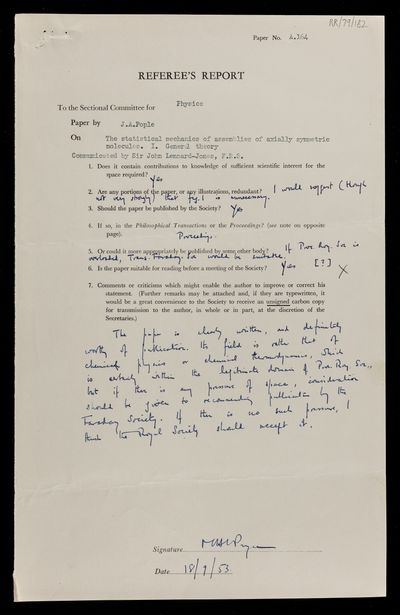 RR/79/182
Paper No. A.364
REFEREE'S REPORT
To the Sectional Committee for Physics
Paper by J.A.Pople
On The statistical mechanics of assemblies of axially symmetric
molecules. I. General theory
Communicated by Sir John Lennard-Jones, F.R.S.
1. Does it contain contributions to knowledge of sufficient scientific interest for the
space required? Yes
2. Are any portions of the paper, or any illustrations, redundant? I would suggest (though
not very strongly) that fig. 1 is unnecessary.
3. Should the paper be published by the Society? Yes
4. If so, in the Philosophical Transactions or the Proceedings? (see note on opposite
page). Proceedings.
5. Or could it more appropriately be published by some other body? If Proc. Roy. Soc is
overloaded, Trans. Faraday. Soc would be suitable.
6. Is the paper suitable for reading before a meeting of the Society? Yes [?] X
7. Comments or criticisms which might enable the author to improve or correct his
statement. (Further remarks may be attached and, if they are typewritten, it
would be a great convenience to the Society to receive an unsigned carbon copy
for transmission to the author, in whole or in part, at the discretion of the
Secretaries.)
The paper is clearly written, and definitely
worthy of publication. Its field is rather that of
chemical physics or chemical thermodynamics, which
is entirely within the legitimate domain of Proc. Roy Soc.,
but if there is any pressure of space, consideration
should be given to recommending publication by the
Faraday Society. If there is no such pressure, I
think the Royal Society should accept it.
Signature
Date 18/9/53